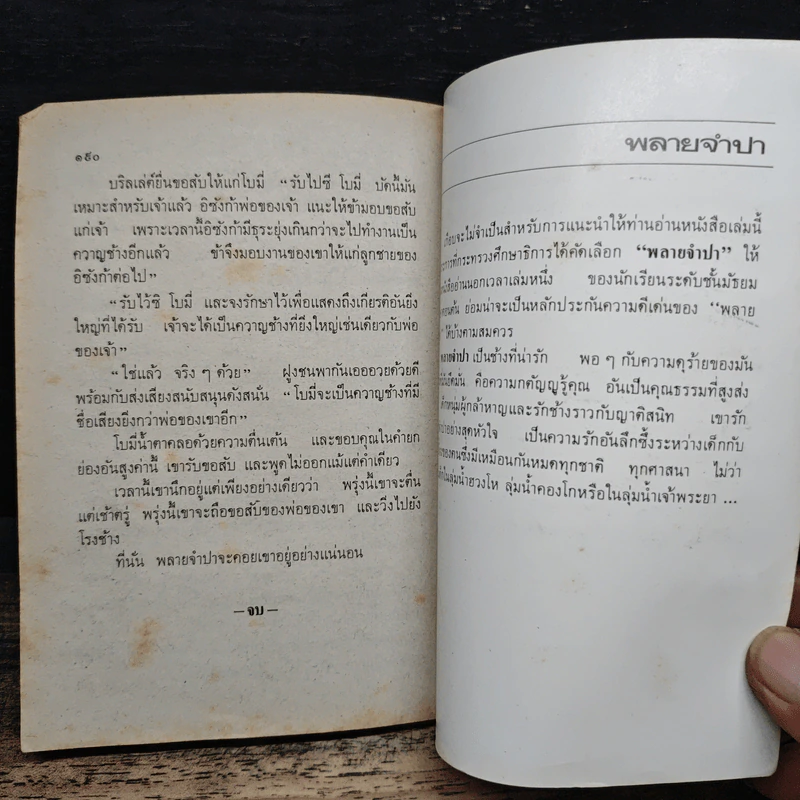 ๑๙๐
บริลเล่ต์ยื่นขอสับให้แก่โบมี่ “รับไปซี โบมี่ บัดนี้มัน
เหมาะสำหรับเจ้าแล้ว อิซังก้าพ่อของเจ้า แนะให้ข้ามอบขอสับ
แก่เจ้า เพราะเวลานี้อิซังก้ามีธุระยุ่งเกินกว่าจะไปทำงานเป็น
ควาญช้างอีกแล้ว ข้าจึงมอบงานของเขาให้แก่ลูกชายของ
อิซังก้าต่อไป”
“รับไว้ซิ โบมี่ และจงรักษาไว้เพื่อแสดงถึงเกียรติอันยิ่ง
ใหญ่ที่ได้รับ เจ้าจะได้เป็นควาญช้างที่ยิ่งใหญ่เช่นเดียวกับพ่อ
ของเจ้า”
“ใช่แล้ว จริง ๆ ด้วย” ฝูงชนพากันเออออวยด้วยดี
พร้อมกับส่งเสียงสนับสนุนดังสนั่น “โบมี่จะเป็นควาญช้างที่มี
ชื่อเสียงยิ่งกว่าพ่อของเขาอีก”
โบมี่น้ำตาคลอด้วยความตื่นเต้น และขอบคุณในคำยก
ย่องอันสูงค่านี้ เขารับขอสับ และพูดไม่ออกแม้แต่คำเดียว
เวลานี้เขานึกอยู่แต่เพียงอย่างเดียวว่า พรุ่งนี้เขาจะตื่น
แต่เช้าตรู่ พรุ่งนี้เขาจะถือขอสับของพ่อของเขา และวิ่งไปยัง
โรงช้าง
ที่นั่น พลายจำปาจะคอยเขาอยู่อย่างแน่นอน
—จบ—
พลายจำปา
เกือบจะไม่จำเป็นสำหรับการแนะนำให้ท่านอ่านหนังสือเล่มนี้
การที่กระทรวงศึกษาธิการได้คัดเลือก “พลายจำปา” ให้
อ่านนอกเวลาเล่มหนึ่ง ของนักเรียนระดับชั้นมัธยม
ย่อมน่าจะเป็นหลักประกันความดีเด่นของ “พลาย
ได้บ้างตามสมควร
พลายจำปา เป็นช้างที่น่ารัก พอ ๆ กับความดุร้ายของมัน
คือความกตัญญูรู้คุณ อันเป็นคุณธรรมที่สูงส่ง
ผู้กล้าหาญและรักช้างราวกับญาติสนิท เขารัก
อย่างสุดหัวใจ เป็นความรักอันลึกซึ้งระหว่างเด็กกับ
ของคนซึ่งมีเหมือนกันหมดทุกชาติ ทุกศาสนา ไม่ว่า
ในลุ่มน้ำฮวงโห ลุ่มน้ำคองโกหรือในลุ่มน้ำเจ้าพระยา ...